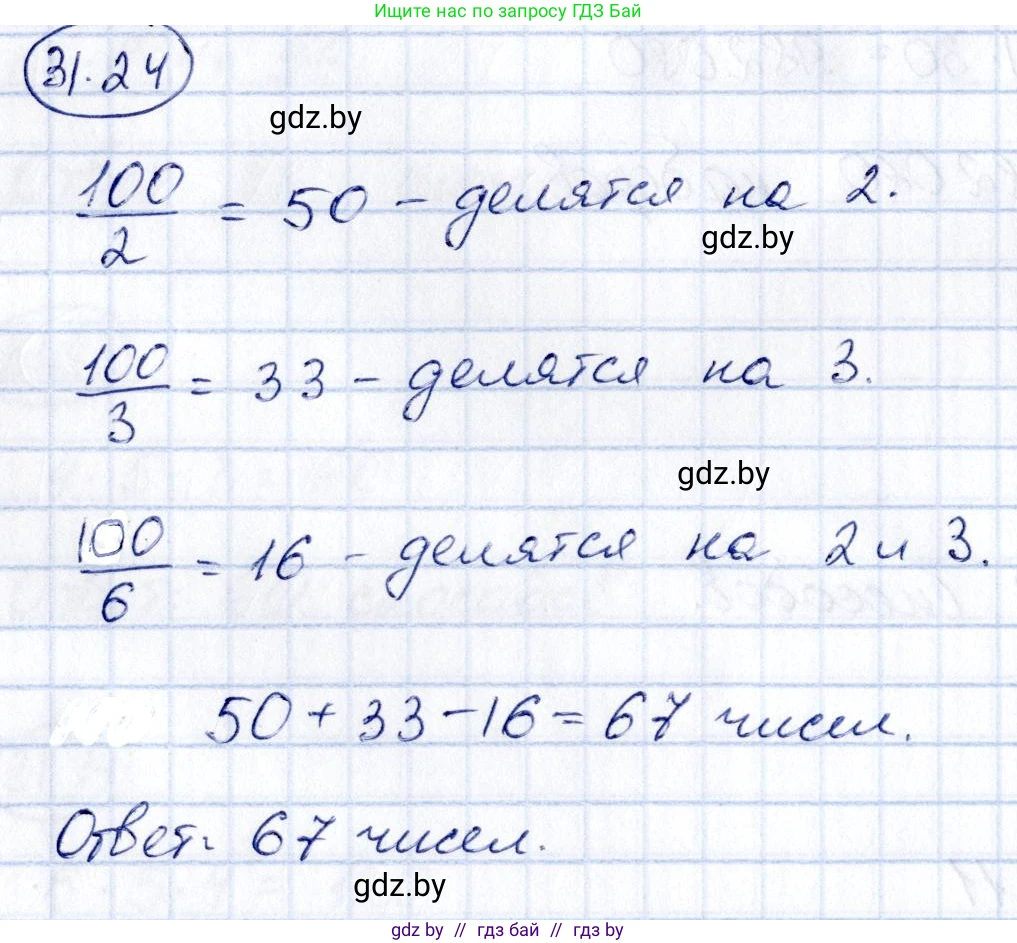 Ищите нас по запросу ГДЗ Бай
31.24
gdz.by
100/2 = 50 - делятся на 2.
gdz.by
100/3 = 33 - делятся на 3.
gdz.by
100/6 = 16 - делятся на 2 и 3.
50 + 33 - 16 = 67 чисел.
Ответ: 67 чисел.
gdz.by
gdz by // гдз бай // гдз by